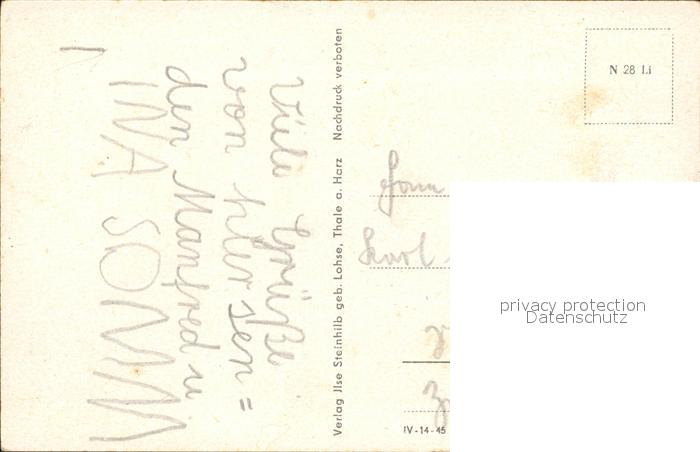 Viele Grüße
von hier sen=
den Manfred u.
INA SOMM
Verlag Ilse Steinhilb geb. Lohse, Thale a. Harz Nachdruck verboten
N 28 Li
Karl
IV-14-45
privacy protection
Datenschutz